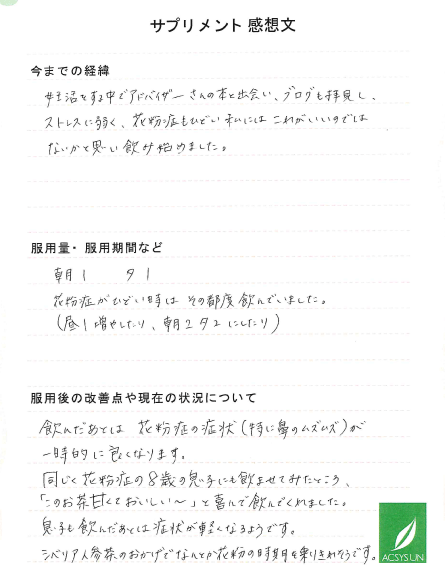 サプリメント 感想文
今までの経緯
妊活をする中でアドバイザーさんの本と出会い、ブログも拝見し、
ストレスに弱く、花粉症もひどい私にはこれがいいのでは
ないかと思い飲み始めました。
服用量・服用期間など
朝1 夕1
花粉症がひどい時は その都度飲んでいました。
(昼1増やしたり、朝2夕2にしたり)
服用後の改善点や現在の状況について
飲んだあとは 花粉症の症状(特に鼻のムズムズ)が
一時的に良くなります。
同じく花粉症の8歳の息子にも飲ませてみたところ、
「このお茶甘くておいしい〜」と喜んで飲んでくれました。
息子も飲んだあとは症状が軽くなるようです。
シベリア人参茶のおかげでなんとか花粉の時期を乗りきれそうです。
ACSYSUN